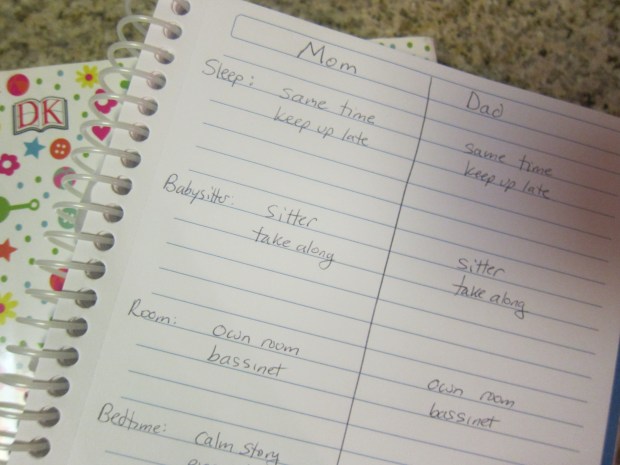 DK
Mom
Dad
Sleep: same time
keep up late
same time
keep up late
Babysitter: sitter
take along
sitter
take along
Room: own room
bassinet
own room
bassinet
Bedtime: calm story